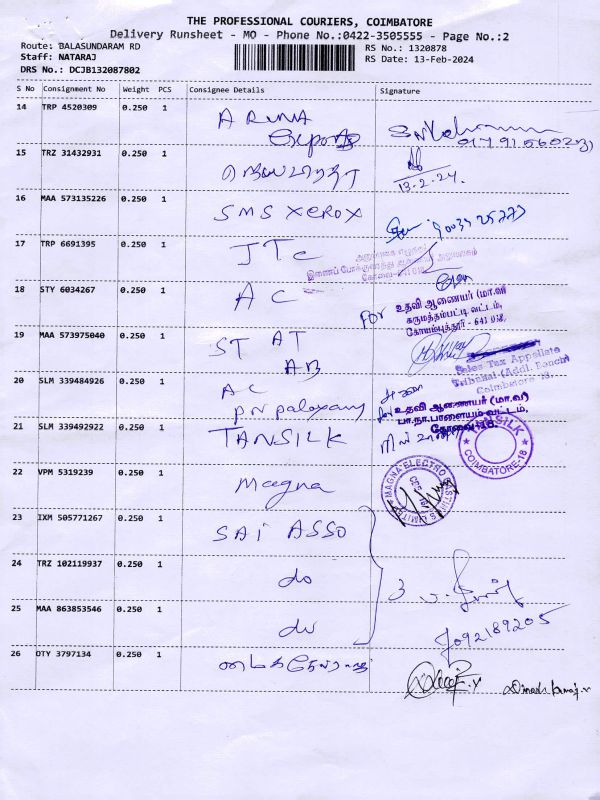 THE PROFESSIONAL COURIERS, COIMBATORE
Delivery Runsheet - MO - Phone No.:0422-3505555 - Page No.:2
Route: BALASUNDARAM RD
RS No.: 1320878
Staff: NATARAJ
RS Date: 13-Feb-2024
DRS No.: DCJB132087802
S No Consignment No Weight PCS Consignee Details Signature
14 TRP 4520309 0.250 1 ARUNA
Exports
15 TRZ 31432931 0.250 1
13-2-24.
16 MAA 573135226 0.250 1 SMS XEROX
17 TRP 6691395 0.250 1 JTC
18 STY 6034267 0.250 1 AC
for உதவி ஆணையர் (மா.வ)
கருமத்தம்பட்டி வட்டம்,
கோயம்புத்தூர் - 641 018.
19 MAA 573975040 0.250 1 STAT
AB
Sales Tax Appellate
Tribunal (Addl. Bench)
Coimbatore 18.
20 SLM 339484926 0.250 1 AC
PN palayam
for உதவி ஆணையர் (மா.வ)
பா.நா.பாளையம் வட்டம்,
கோவை-18.
21 SLM 339492922 0.250 1 TANSILK
COIMBATORE-18
22 VPM 5319239 0.250 1 Magna
MAGNA ELECTRO
23 IXM 505771267 0.250 1 SAI ASSO
24 TRZ 102119937 0.250 1 do
25 MAA 863853546 0.250 1 do
26 OTY 3797134 0.250 1